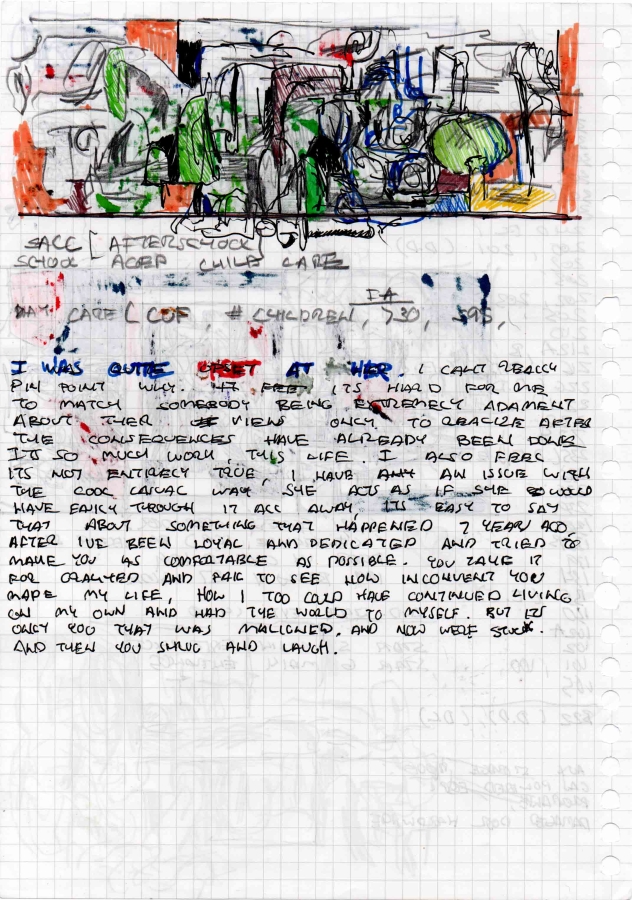 SACC [AFTERSCHOOL]
SCHOOL AGED CHILD CARE
IA
DAY CARE ( COF, # CHILDREN, >30, 595,
I WAS QUITE UPSET AT HER. I CANT REALLY
PIN POINT WHY. ITS HARD FOR ME
TO WATCH SOMEBODY BEING EXTREMELY ADAMENT
ABOUT THER VIEWS ONLY TO REALIZE AFTER
THE CONSEQUENCES HAVE ALREADY BEEN DONE
ITS SO MUCH WORK, THIS LIFE. I ALSO FEEL
ITS NOT ENTIRELY TRUE, I HAVE AN ISSUE WITH
THE COOL CASUAL WAY SHE ACTS AS IF SHE WOULD
HAVE EASILY THROUGH IT ALL AWAY, ITS EASY TO SAY
THAT ABOUT SOMETHING THAT HAPPENED 7 YEAR AGO,
AFTER I'VE BEEN LOYAL AND DEDICATED AND TRIED TO
MAKE YOU AS COMFORTABLE AS POSSIBLE. YOU TAKE IT
FOR GRANTED AND FAIL TO SEE HOW INCONVENT YOU
MADE MY LIFE, HOW I TOO COULD HAVE CONTINUED LIVING
ON MY OWN AND HAD THE WORLD TO MYSELF. BUT ITS
ONLY YOU THAT WAS MALIGNED, AND NOW WERE STUCK.
AND THEN YOU SHRUG AND LAUGH.